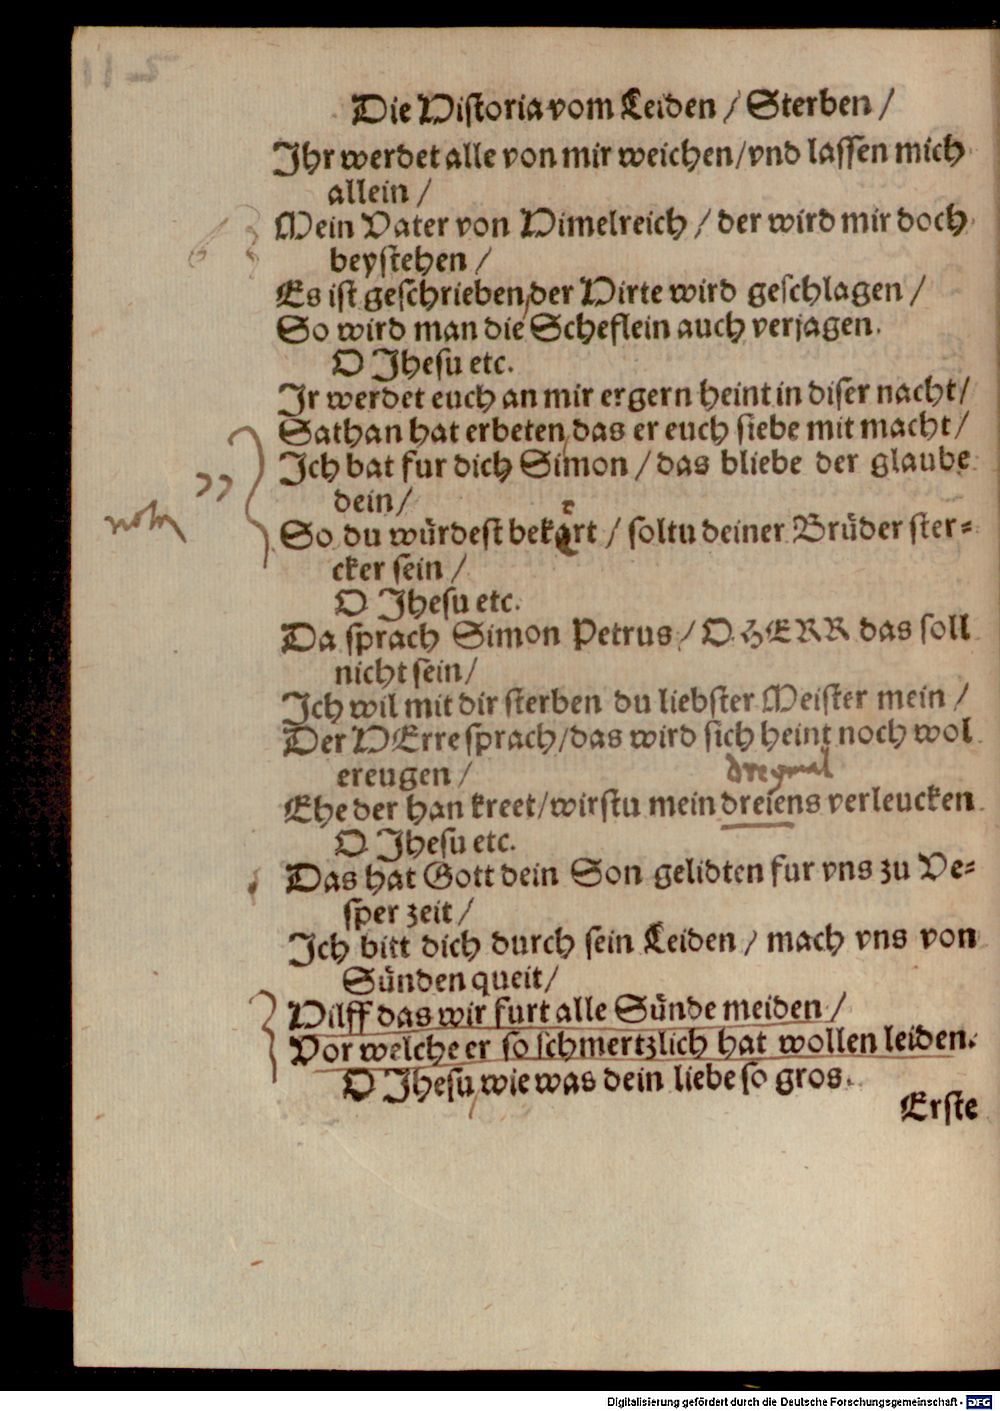 Die Historia vom Leiden / Sterben /
Ihr werdet alle von mir weichen/vnd lassen mich
allein /
Mein Vater von Himelreich / der wird mir doch
beystehen /
Es ist geschrieben, der Hirte wird geschlagen /
So wird man die Scheflein auch verjagen.
O Jhesu etc.
Ir werdet euch an mir ergern heint in diser nacht/
Sathan hat erbeten, das er euch siebe mit macht /
Ich bat fur dich Simon / das bliebe der glaube
dein /
nota
So du würdest bekart / soltu deiner Brüder ster⸗
cker sein /
O Jhesu etc.
Da sprach Simon Petrus / O HERR das soll
nicht sein /
Ich wil mit dir sterben du liebster Meister mein /
Der HErre sprach/das wird sich heint noch wol
ereugen /
dreymal
Ehe der han kreet/wirstu mein dreiens verleucken
O Jhesu etc.
Das hat Gott dein Son gelidten fur vns zu Ve⸗
sper zeit /
Ich bitt dich durch sein Leiden / mach vns von
Sünden queit /
Hilff das wir furt alle Sünde meiden /
Vor welche er so schmertzlich hat wollen leiden.
O Jhesu, wie was dein liebe so gros.
Erste
Digitalisierung gefördert durch die Deutsche Forschungsgemeinschaft - DFG